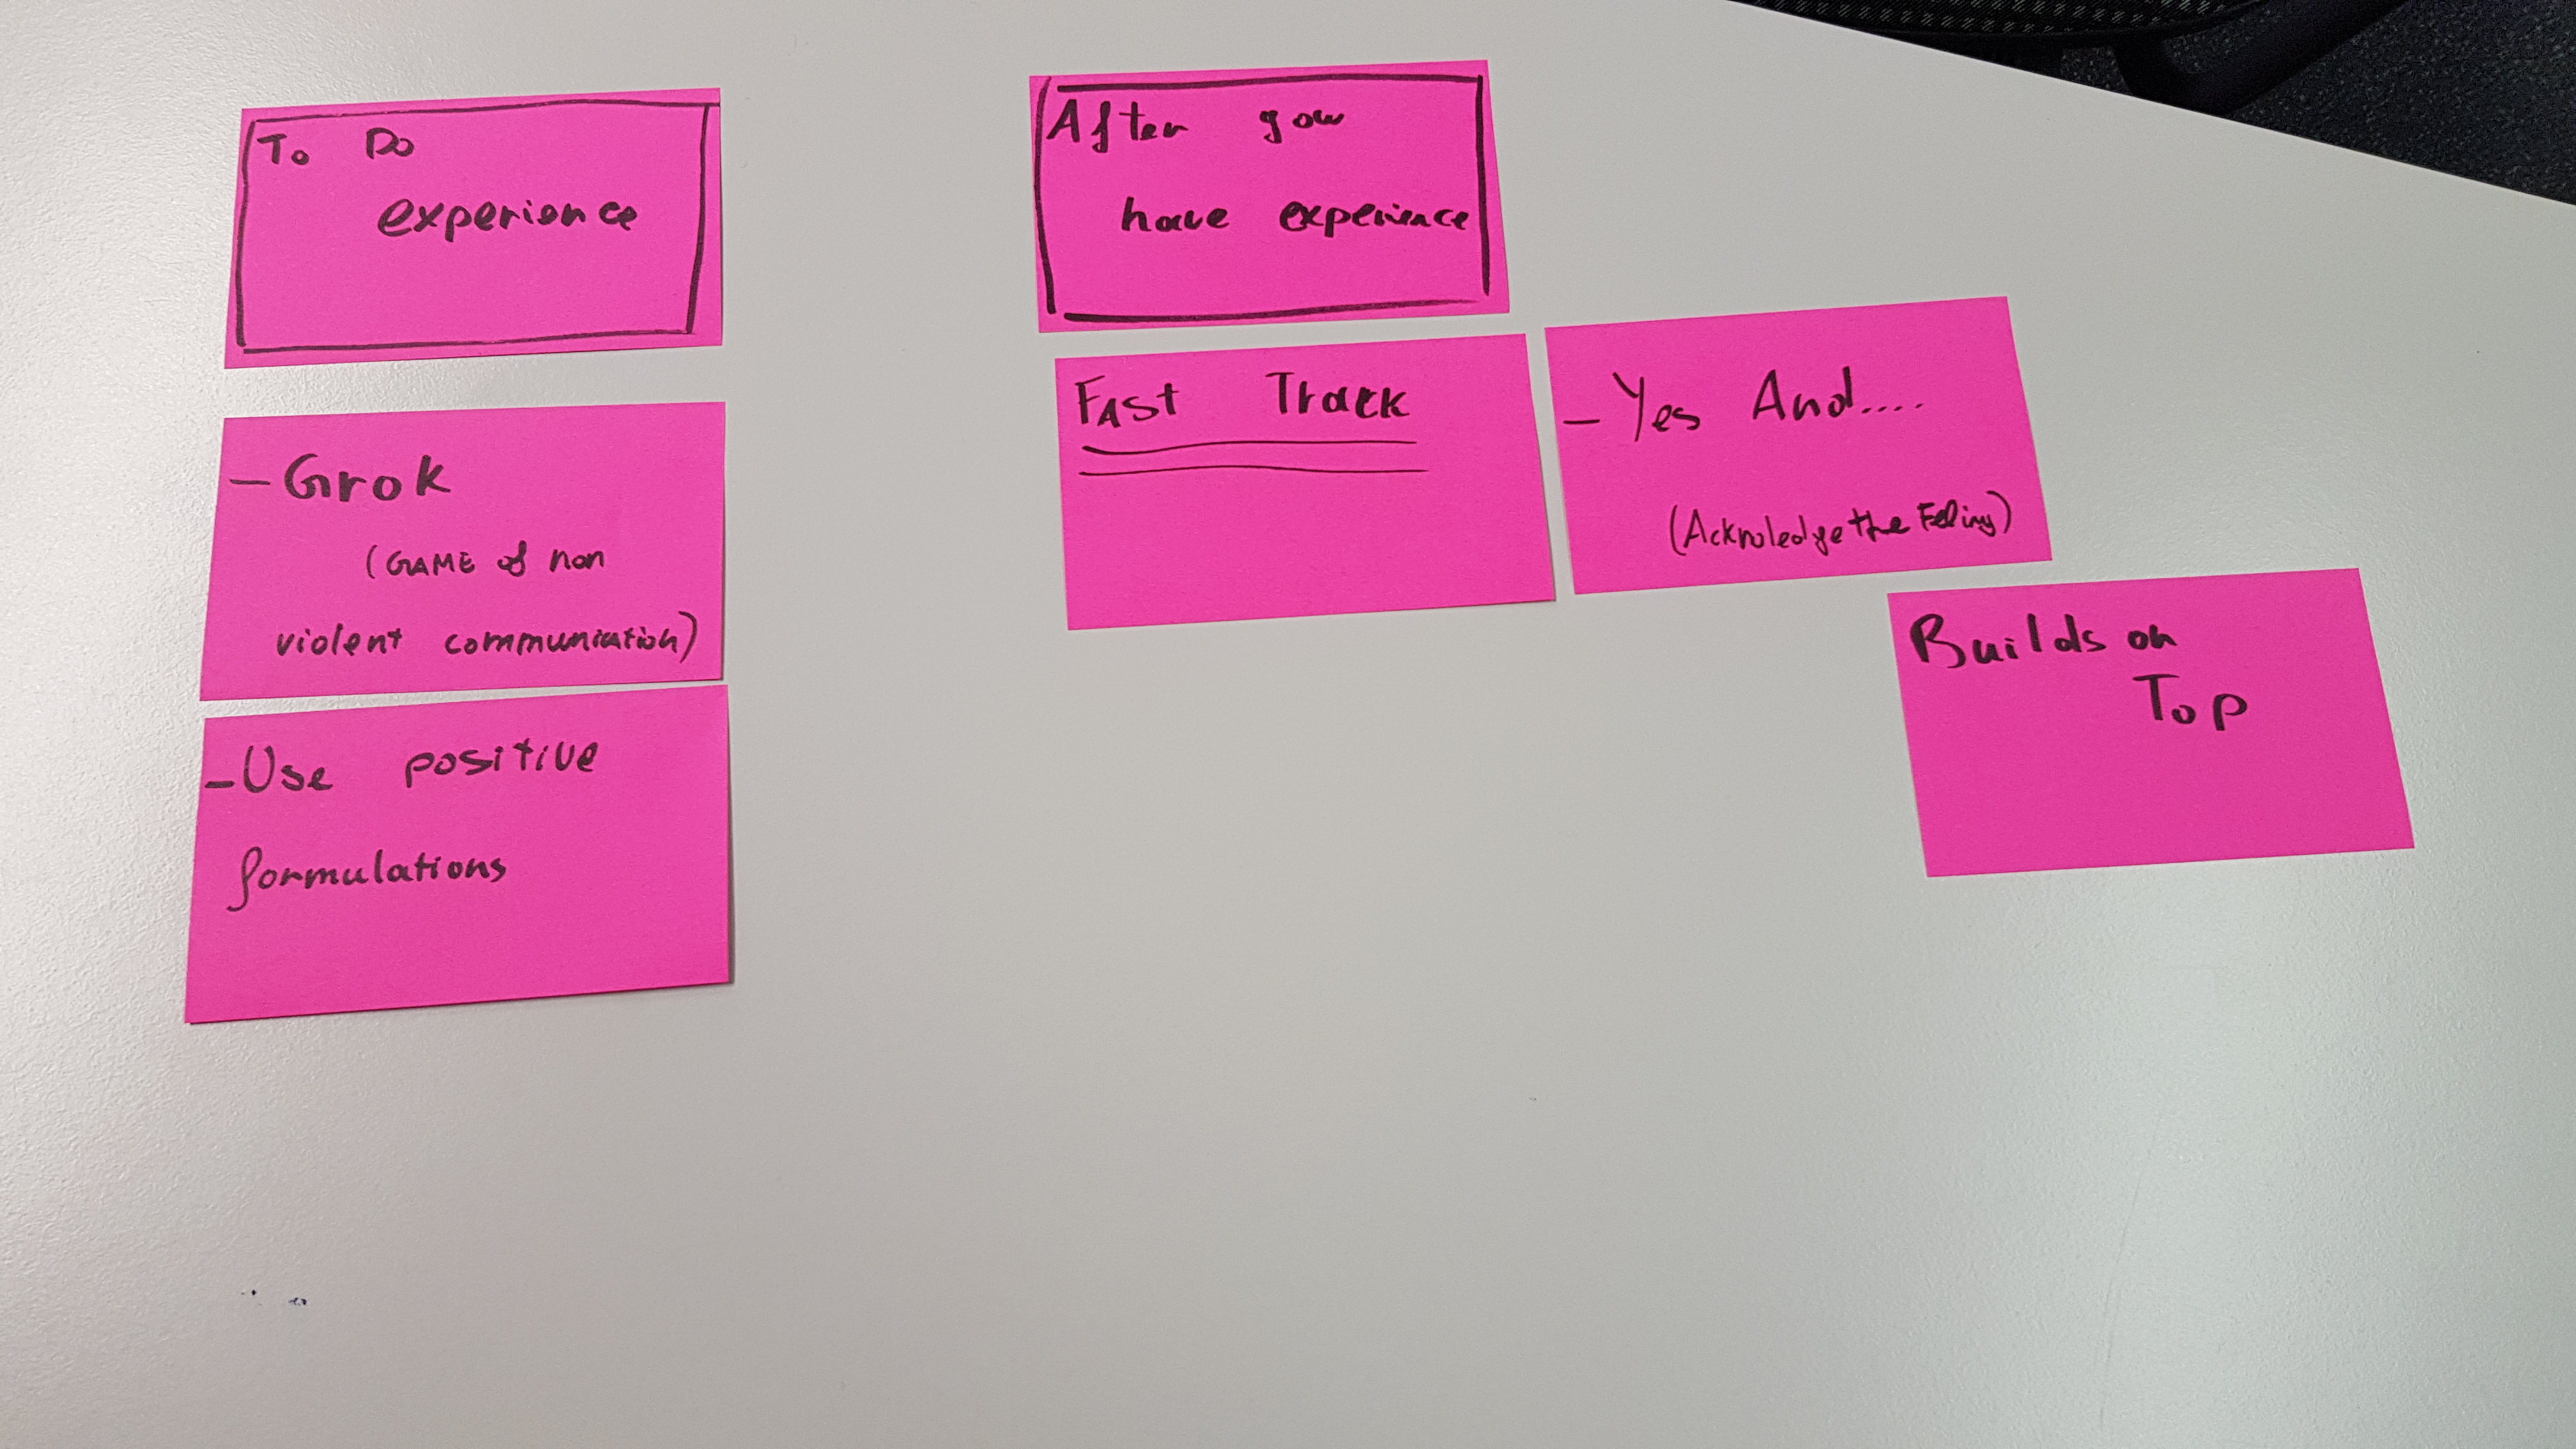 To Do
experience
- Grok
(GAME of non
violent communication)
- Use positive
formulations
After you
have experience
FAST Track
- Yes And.....
(Acknoledge the Feeling)
Builds on
Top